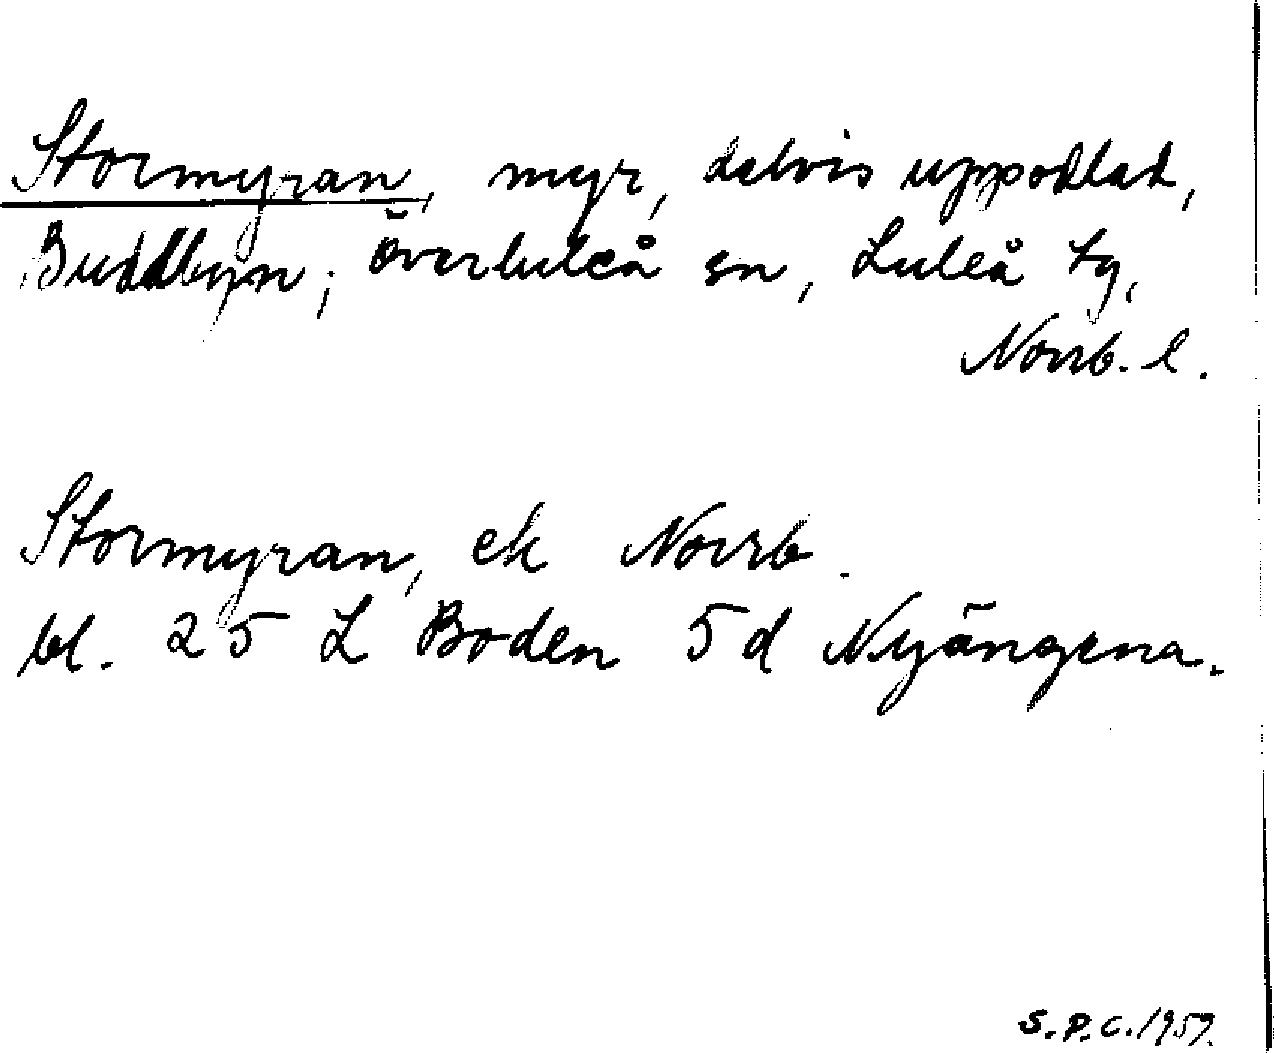 Stormyran, myr, delvis uppodlad,
Buddbyn, Överluleå sn, Luleå tg,
Norrb. l.
Stormyran, ek Norrb.
bl. 25 L Boden 5d Nyängena.
S.P.C. 1959.